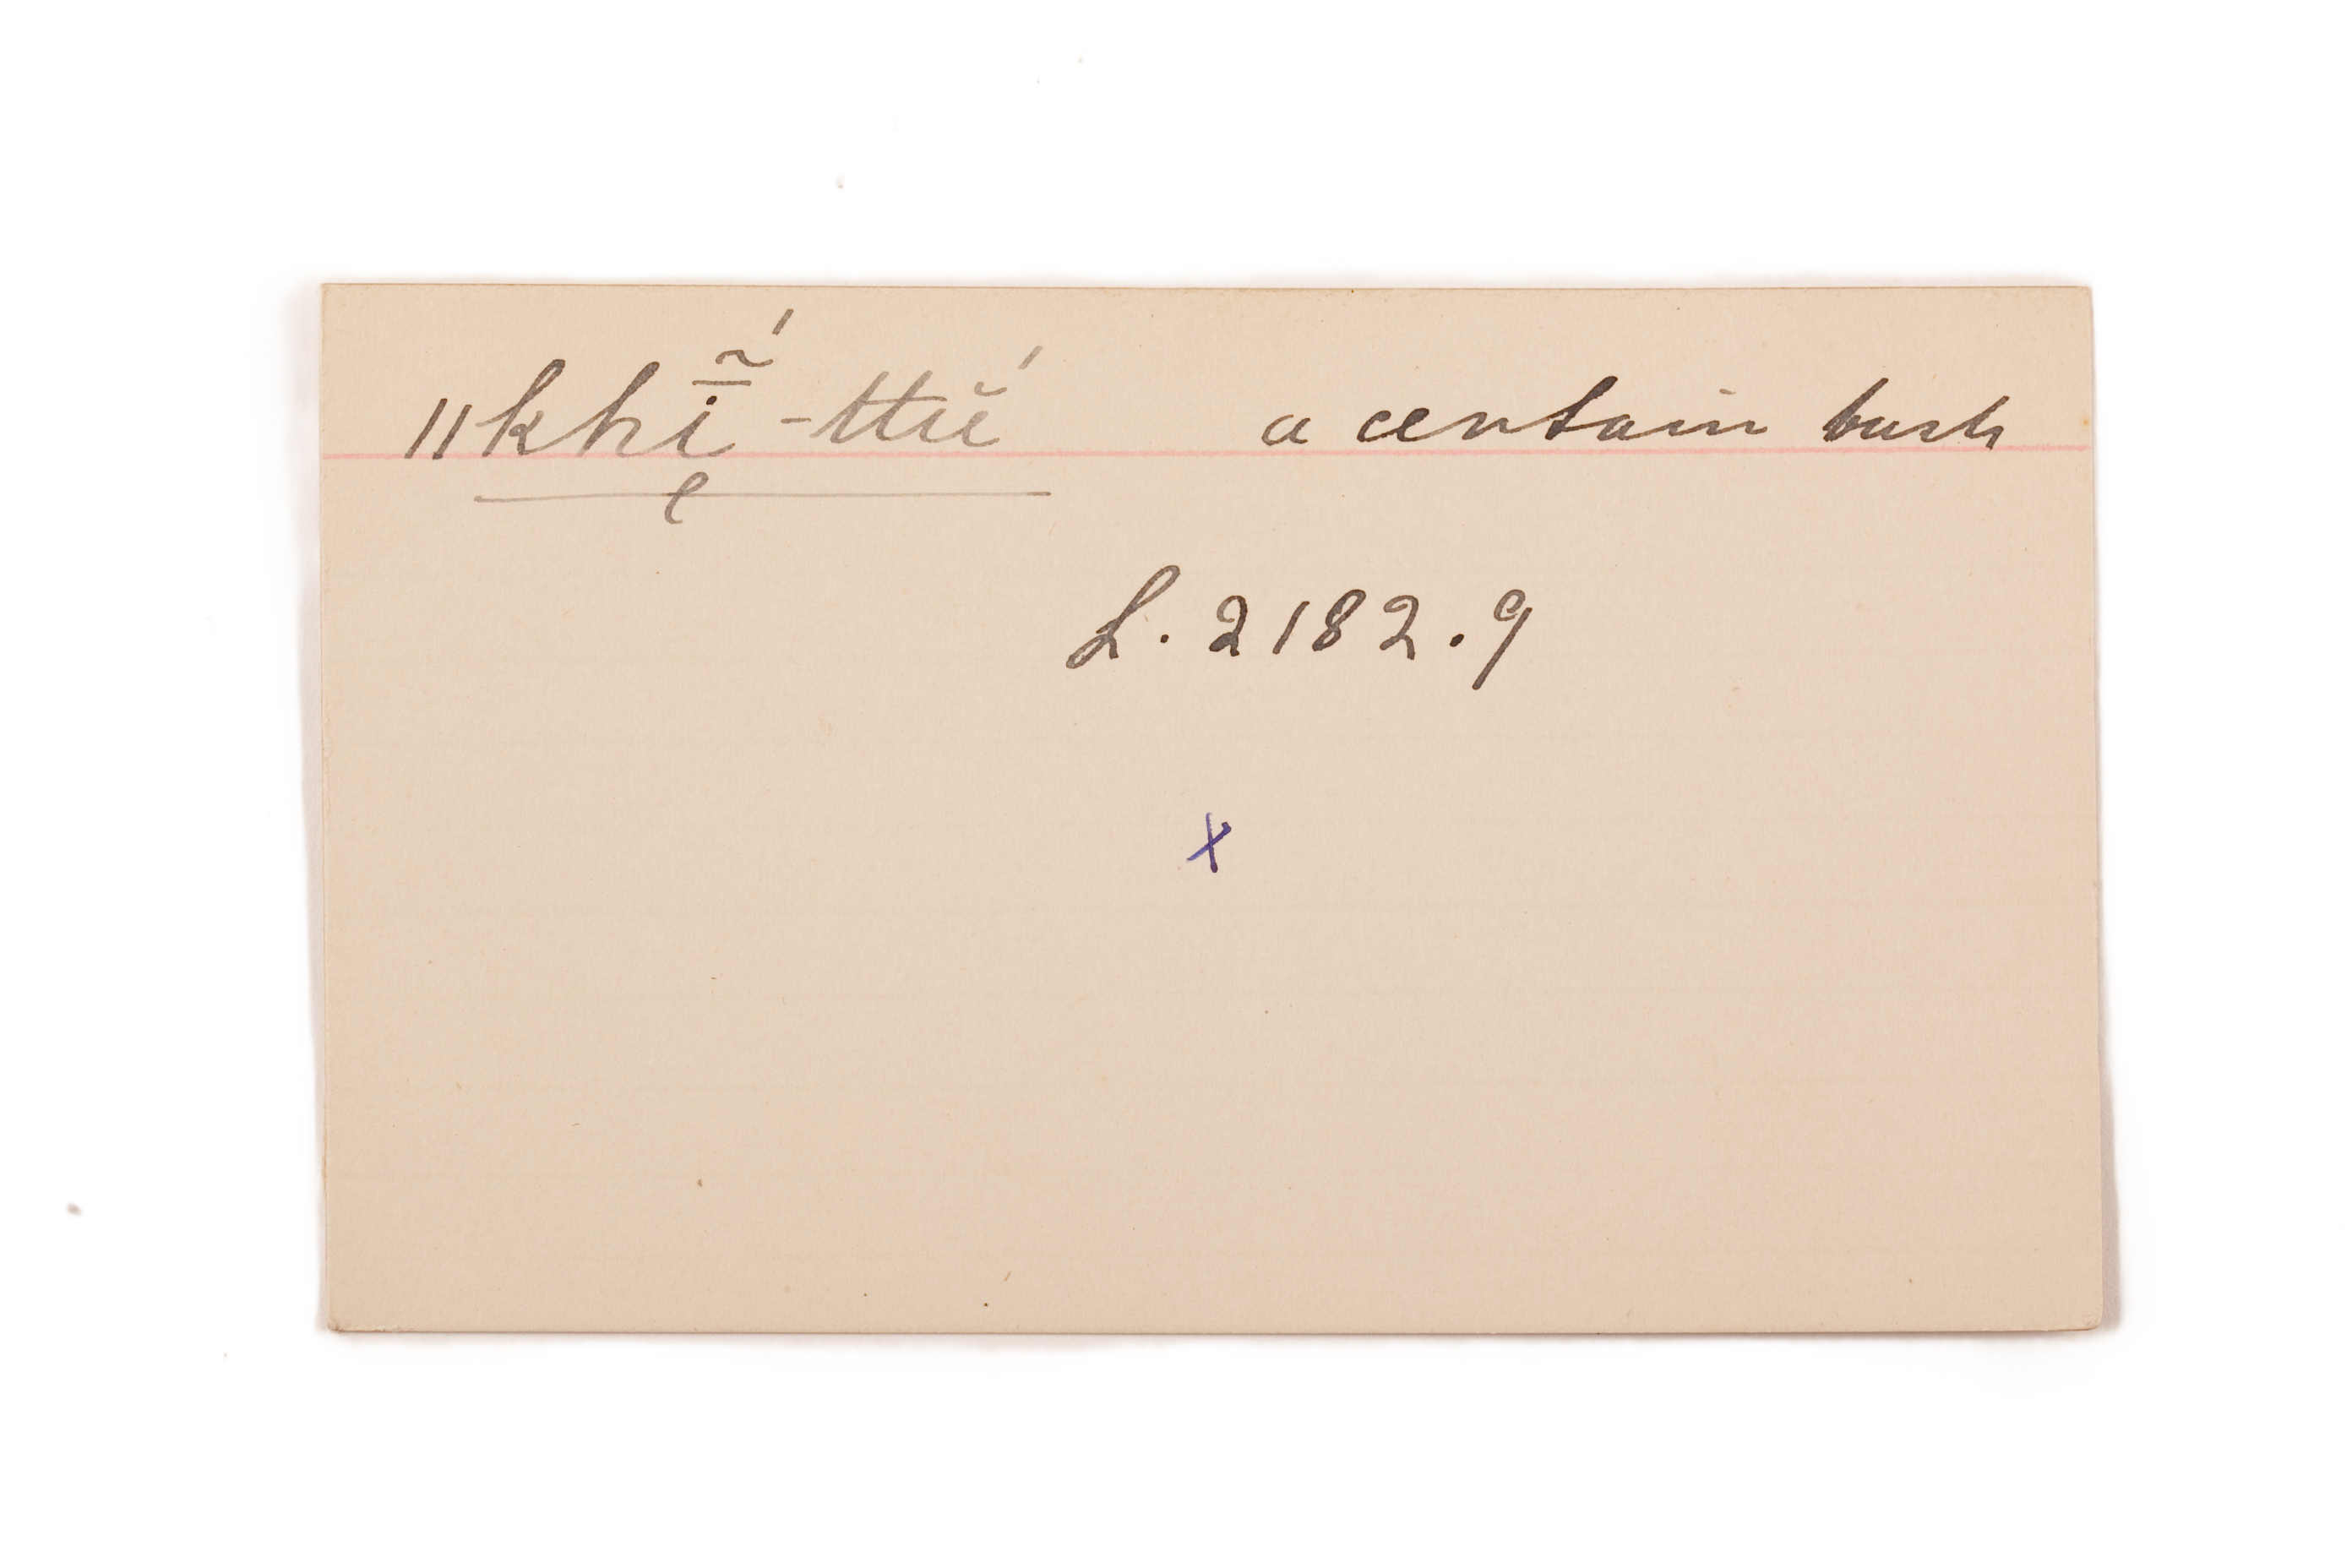 ǁkhī̃́-ttŭ́ a certain bush
L. 2182.9
x